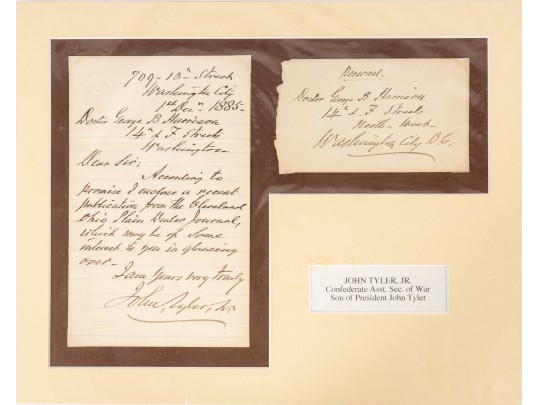 709 - 13th Street
Washington City
1st Decr 1885 -
Doctor George B Harrison
14th & F Streets
Washington
Dear Sir:
According to
promise I enclose a recent
publication from the Cleveland
Ohio Plain Dealer Journal,
which may be of some
interest to you in glancing
over -
I am Yours very truly
John Tyler, Jr.
Personal.
Doctor George B Harrison
14th & F Streets
North-West -
Washington City D.C.
JOHN TYLER, JR.
Confederate Asst. Sec. of War
Son of President John Tyler